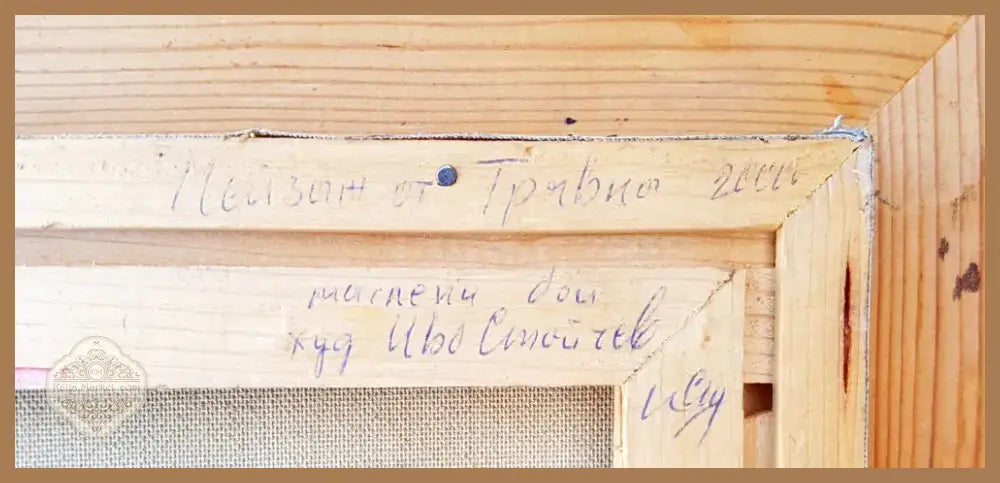 Пейзаж от Трявна 2000
маслени бои
худ Иво Стойчев